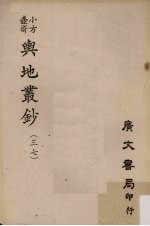 小方壺齋
輿地叢鈔
（三七）
廣文書局印行